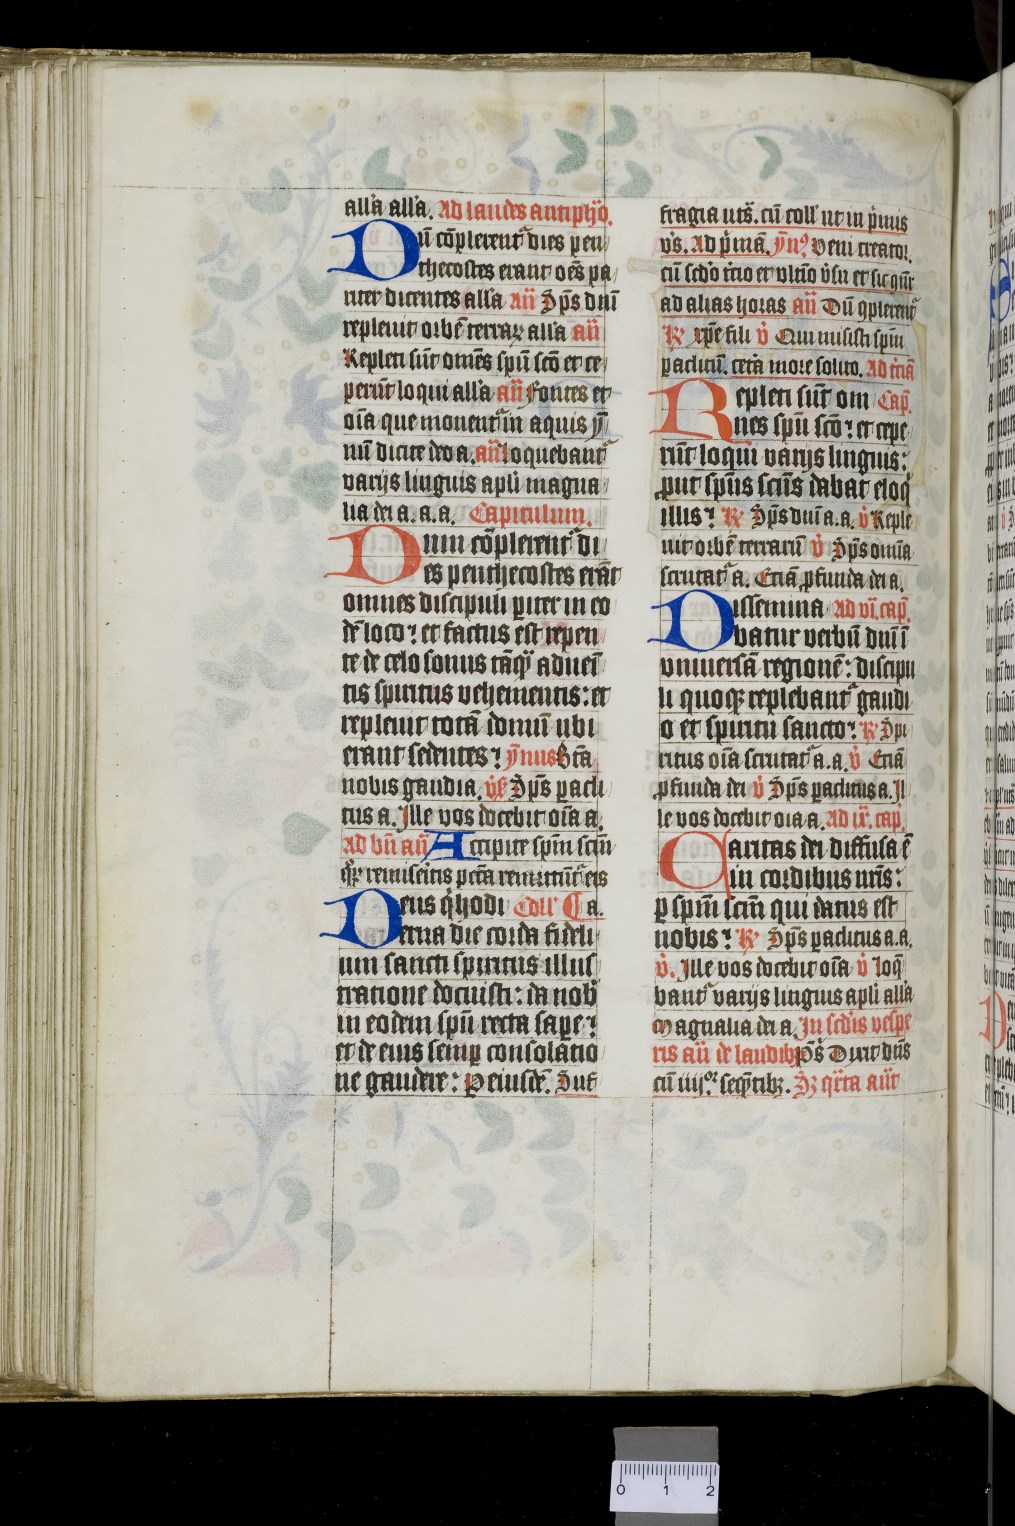 all'a all'a. Ad laudes antipho.
Dū cōplerent᷑ dies pen
thecostes erant oēs pa
riter dicentes all'a añ Sp̄s dn̄i
repleuit orbē terraꝝ all'a añ
Repleti sūt omēs spū scō et ce
perūt loqui all'a añ Fontes et
oīa que mouent᷑ in aquis ym̄
nū dicite deo a. añ loquebant᷑
varijs linguis apl̄i magna
lia dei a. a. a. Capitulum.
Dum cōplerent᷑ di
es penthecostes erāt
omnes discipuli pariter in eo
dē loco: et factus est repen
te de celo sonus tāqȝ adueī
tis spiritus vehementis: et
repleuit totā domū ubi
erant sedentes: ymnus Btā
nobis gaudia. v̓s Sp̄s pacli
tus a. Ille vos docebit oīa a.
Ad bn̄ añ Accipite spm̄ scm̄
qȝ remiseritis pctā remittūt᷑ eis
Deus q̇ hodi Coll' Ca.
erna die corda fideli
um sancti spiritus illus
tratione docuisti: da nob
in eodem spū recta sape:
et de eius semp consolatio
ne gaudere: P eiusdē. Suf
fragia ut s̄. cū coll' ut in pīmis
v̓s. Ad p̄mā. ymꝯ veni creator.
cū scdo tcio et vltīo v̓su et sic qn̄r
ad alias horas añ Dū ꝯplerent᷑
℟ xpe fili v̓ Qui misisti spm̄
paclitū. ceta more solito. Ad tciā
Repleti sūt om Cap.
nes spū scō: et cepe
rūt loqui varijs linguis:
put spūs scūs dabat eloq̄
illis: ℟ Sp̄s dn̄i a. a. v̓ Reple
uit orbē terrarū v̓ Sp̄s omīa
scrutat᷑ a. Eciā pfunda dei a.
Dissemina Ad vi. cap.
batur verbū dn̄i ī
vniuersā regionē: discipu
li quoqȝ replebant᷑ gaudi
o et spiritu sancto: ℟ Spi
ritus oīa scrutat᷑ a. a. v̓ Eciā
pfunda dei v̓ Sp̄s paclitus a. Il
le vos docebit oīa a. Ad ix. cap.
Caritas dei diffusa ē
in cordibus nr̄is:
p spm̄ scm̄ qui datus est
nobis: ℟ Sp̄s paclitus a. a.
v̓. Ille vos docebit oīa v̓ loq̄
bant᷑ varijs linguis apl̄i all'a
Magnalia dei a. In scdis vespe
ris añ de laudibȝ Ps̄ Dixit dn̄s
cū iiijᵒʳ seqn̄tibȝ. Sȝ q̄rta añt